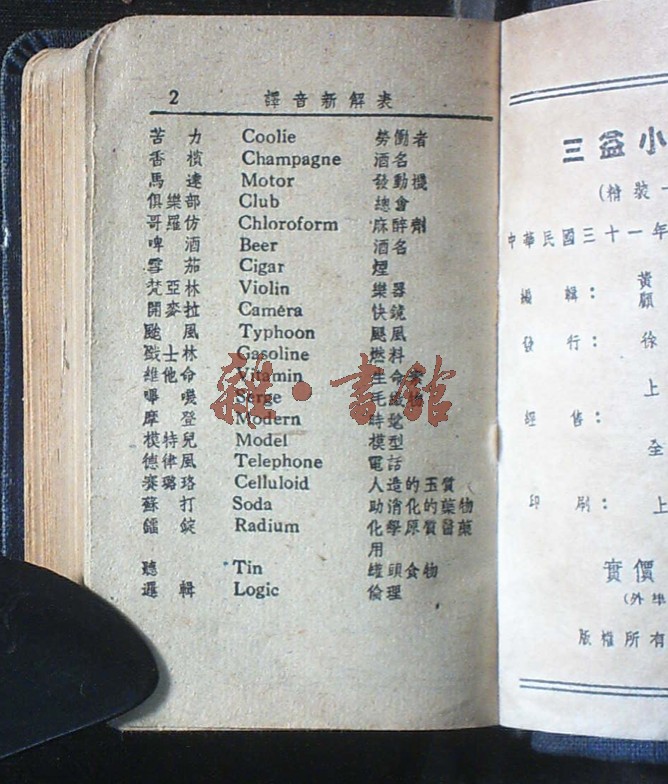 2 譯音新解表
苦力 Coolie 勞働者
香檳 Champagne 酒名
馬達 Motor 發動機
俱樂部 Club 總會
哥羅仿 Chloroform 麻醉劑
啤酒 Beer 酒名
雪茄 Cigar 煙
梵亞林 Violin 樂器
開麥拉 Caméra 快鏡
颱風 Typhoon 颶風
士林 Gasoline 燃料
維他命 Vitamin 生命素
嗶嘰 Serge 毛織物
摩登 Modern 時髦
模特兒 Model 模型
德律風 Telephone 電話
賽璐珞 Celluloid 人造的玉質
蘇打 Soda 助消化的藥物
鐳錠 Radium 化學原質醫藥
用
聽 Tin 罐頭食物
邏輯 Logic 倫理
雜·書館
三益小
(精裝
中華民國三十一年
編輯： 黃
顧
發行： 徐
上
經售：
全
印刷： 上
實價
(外埠
版權所有